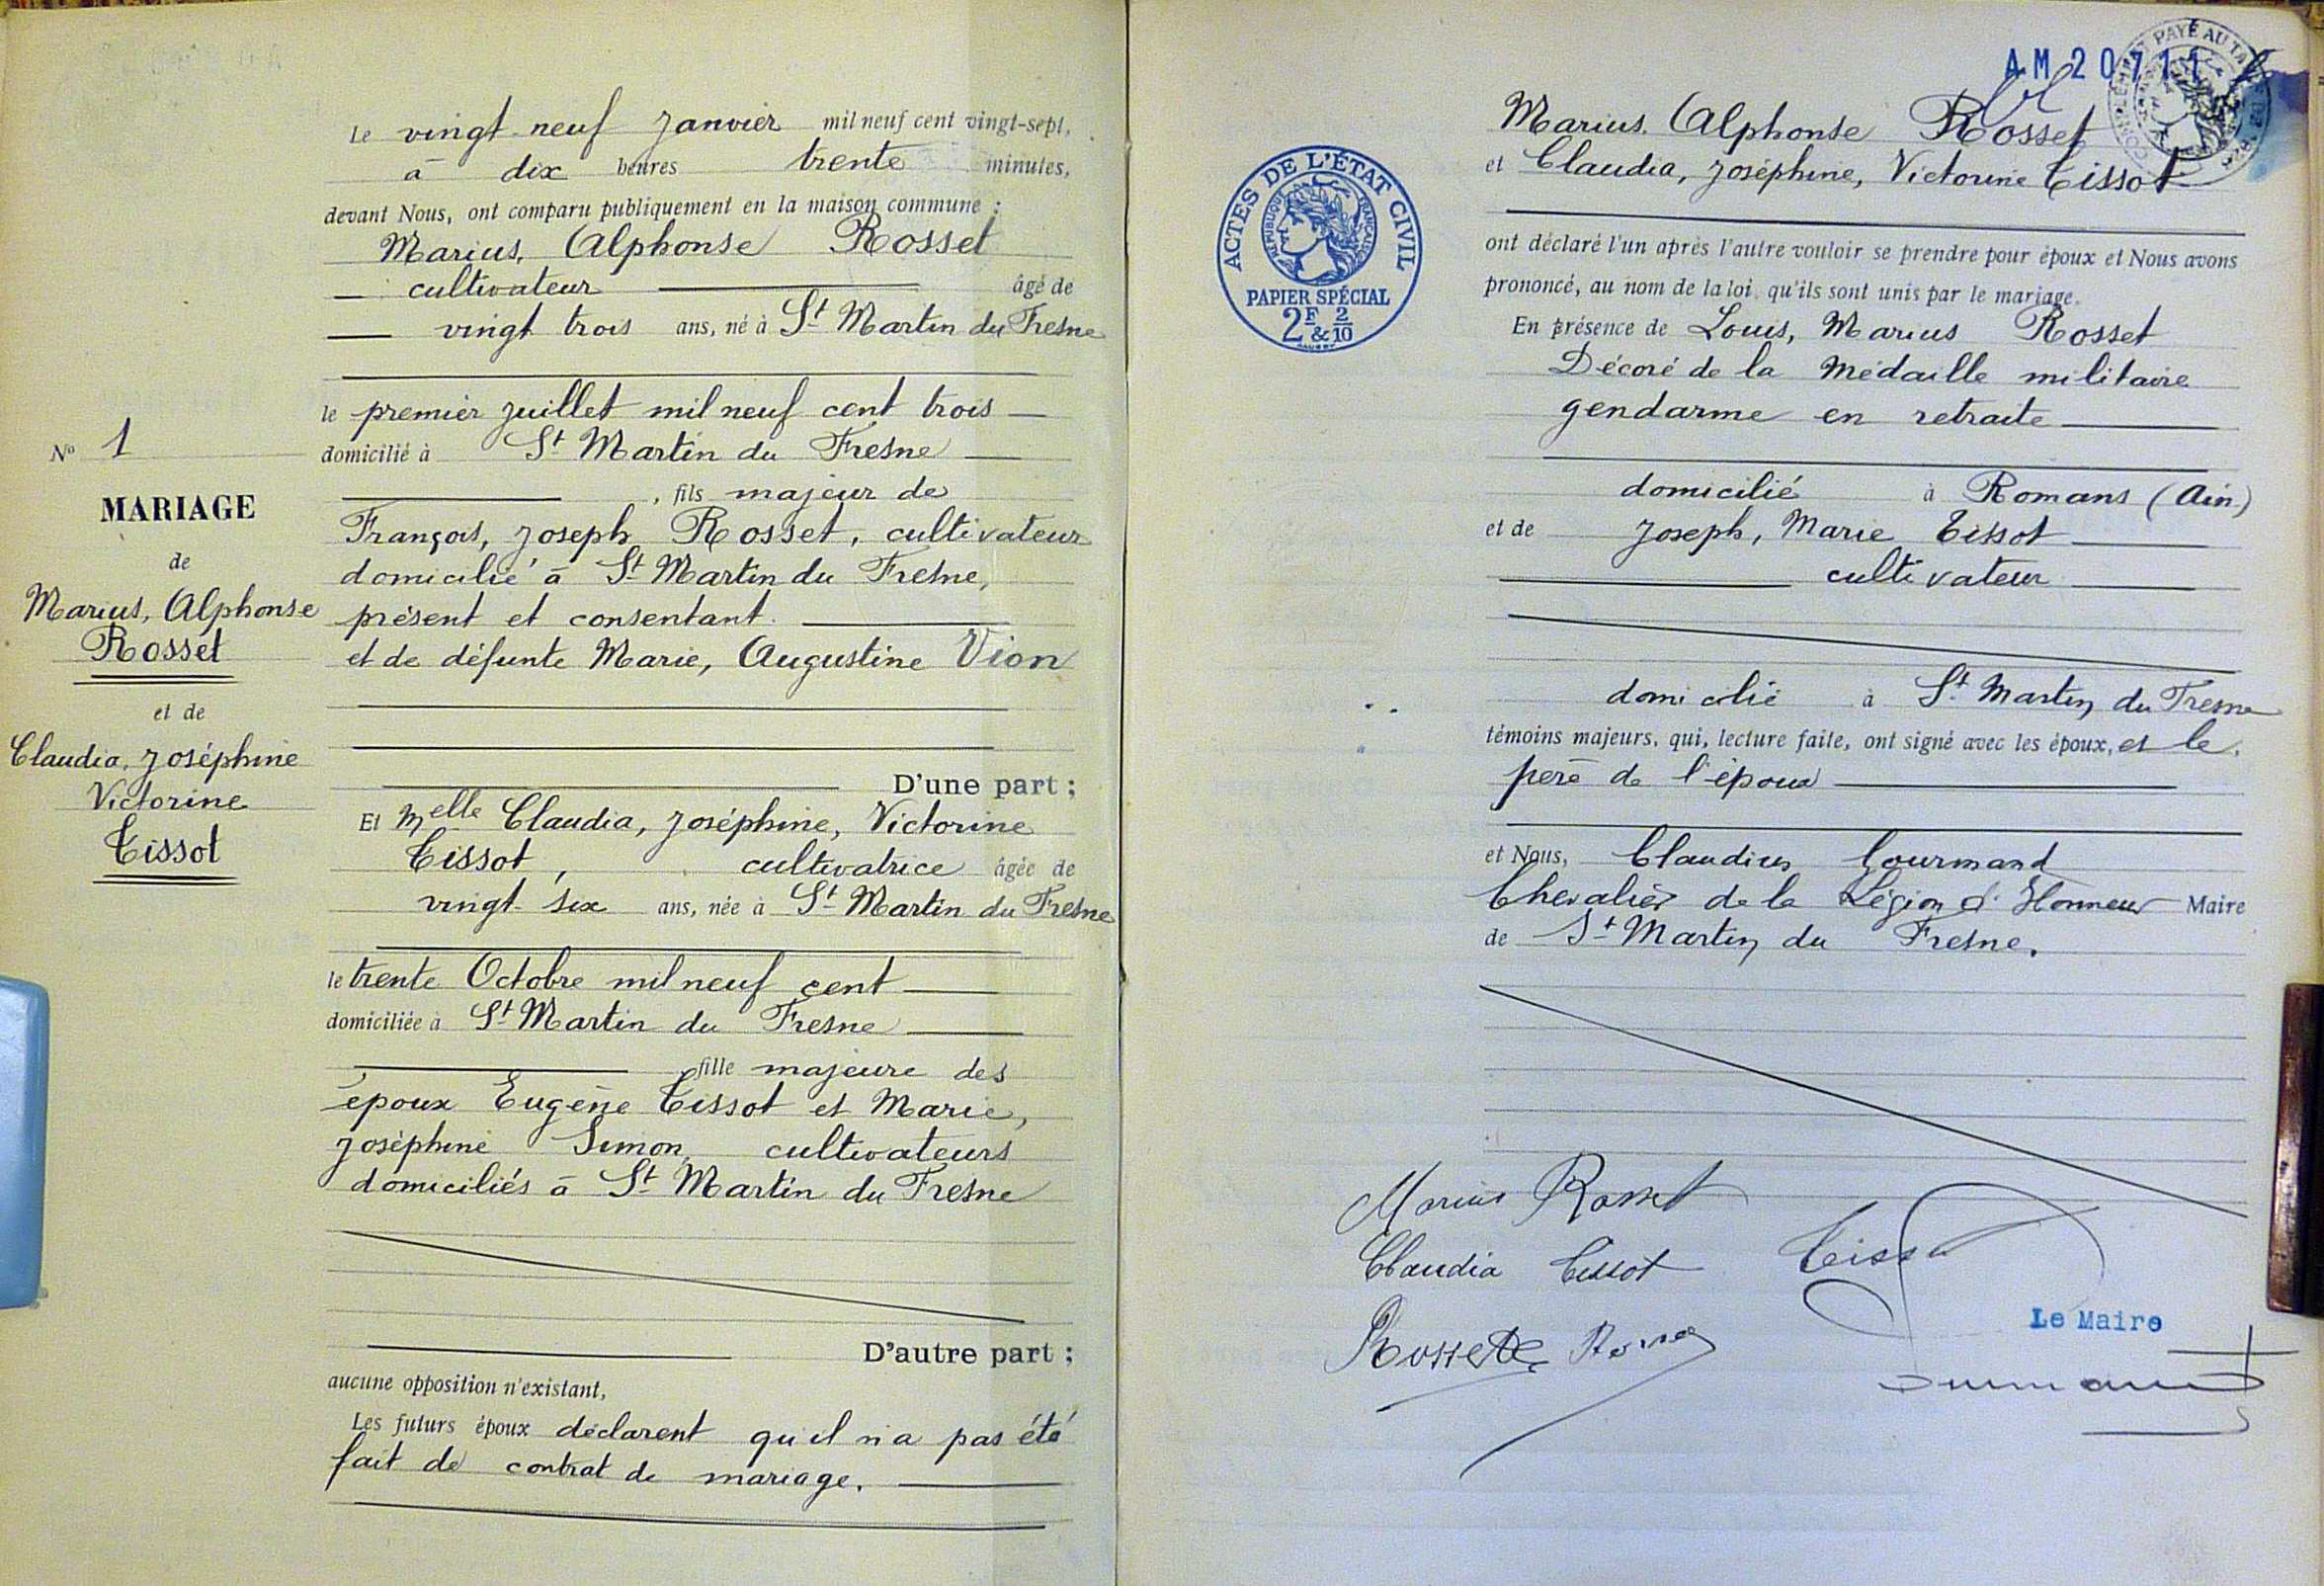 Nº 1
MARIAGE
de
Marius, Alphonse
Rosset
et de
Claudia, Joséphine
Victorine
Tissot
Le vingt-neuf Janvier mil neuf cent vingt-sept,
à dix heures trente minutes,
devant Nous, ont comparu publiquement en la maison commune :
Marius, Alphonse Rosset
cultivateur âgé de
vingt trois ans, né à St Martin du Fresne
le premier juillet mil neuf cent trois
domicilié à St Martin du Fresne
, fils majeur de
François, Joseph Rosset, cultivateur
domicilié à St Martin du Fresne,
présent et consentant.
et de défunte Marie, Augustine Vion
D'une part ;
Et Melle Claudia, Joséphine, Victorine
Tissot, cultivatrice âgée de
vingt-six ans, née à St Martin du Fresne
le trente Octobre mil neuf cent
domiciliée à St Martin du Fresne
fille majeure des
époux Eugène Tissot et Marie,
Joséphine Simon, cultivateurs
domiciliés à St Martin du Fresne
D'autre part ;
aucune opposition n'existant,
Les futurs époux déclarent qu'il n'a pas été
fait de contrat de mariage.
ACTES DE L'ÉTAT CIVIL
RÉPUBLIQUE FRANÇAISE
PAPIER SPÉCIAL
2F & 2/10
PAYÉ AU
Marius, Alphonse Rosset
et Claudia, Joséphine, Victorine Tissot
ont déclaré l'un après l'autre vouloir se prendre pour époux et Nous avons
prononcé, au nom de la loi, qu'ils sont unis par le mariage.
En présence de Louis, Marius Rosset
Décoré de la Médaille militaire
gendarme en retraite
domicilié à Romans (Ain)
et de Joseph, Marie Tissot
cultivateur
domicilié à St Martin du Fresne
témoins majeurs, qui, lecture faite, ont signé avec les époux, et le
père de l'époux
et Nous, Claudius Gourmand
Chevalier de la Légion d'Honneur Maire
de St Martin du Fresne.
Marius Rosset
Claudia Tissot Tissot
Rosset
Le Maire